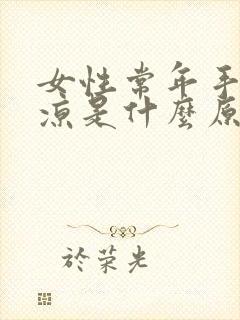 女性常年手
涼是什麼原
於荣光